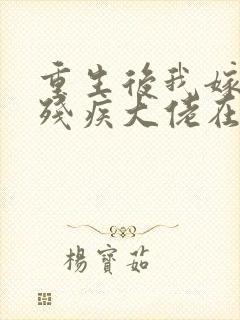 重生後我嫁
殘疾大佬在
楊寶茹